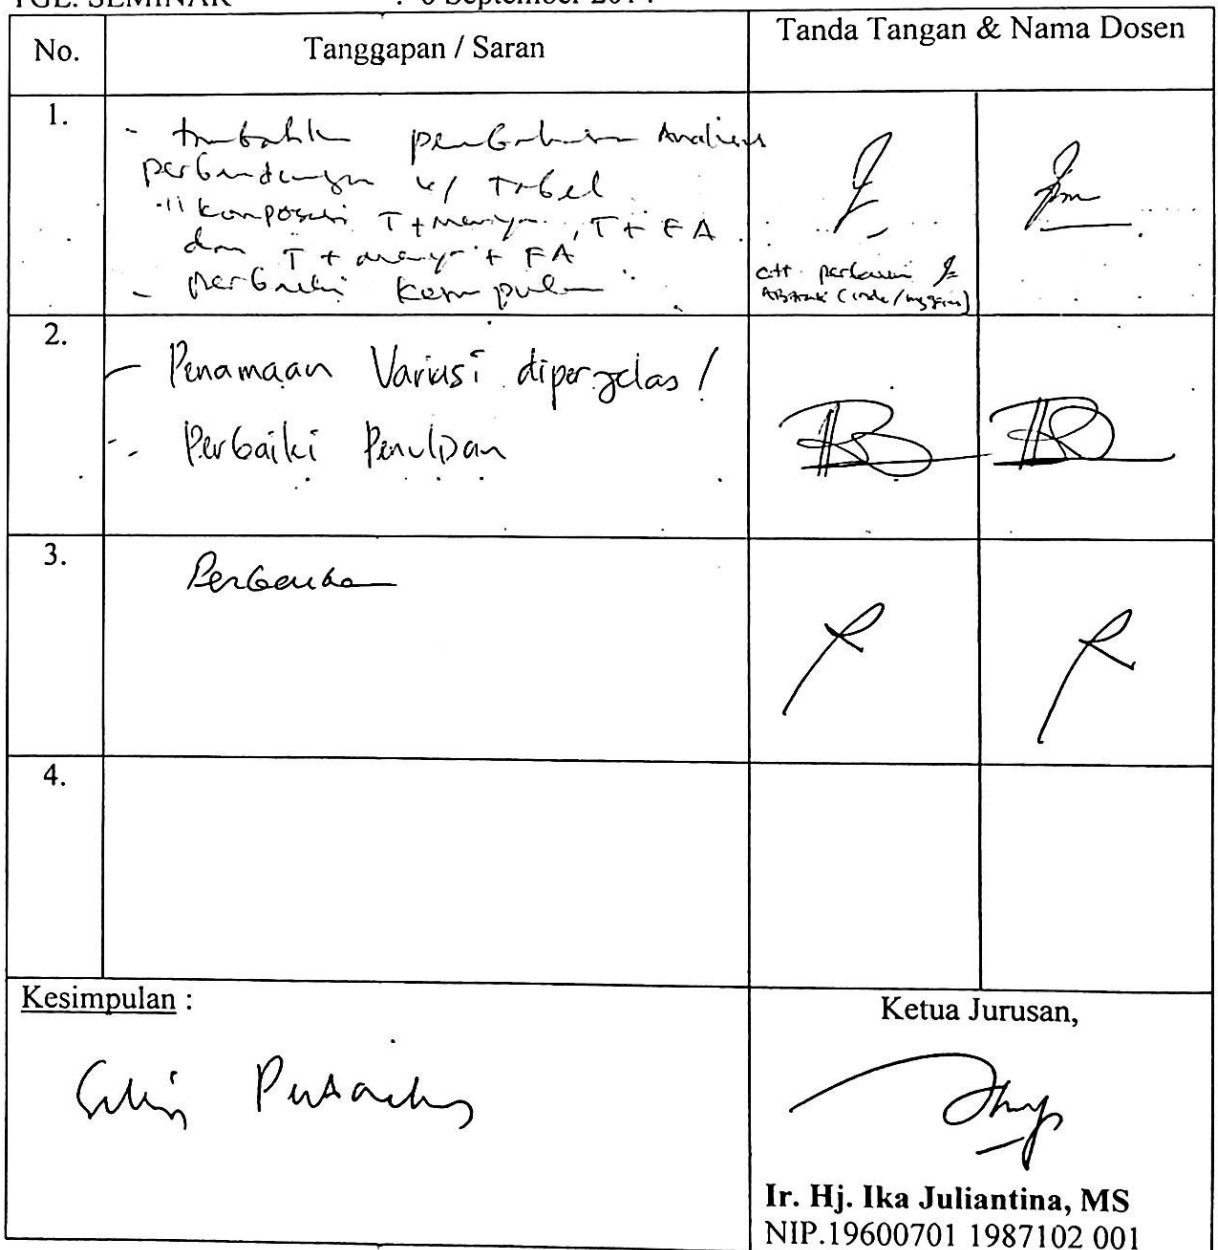 TGL. SEMINAR : 6 September 2014
No. Tanggapan / Saran Tanda Tangan & Nama Dosen
1.
- tambahkan pembahasan Analisis
perbandingan u/ Tabel
komposisi T + , T + FA
dan T + + FA
- perbaiki kesimpulan
ctt perbaiki
ABstrak (indo/inggris)
2.
- Penamaan Variasi diperjelas !
- Perbaiki Penulisan
3.
Perbaikan
4.
Kesimpulan :
Ketua Jurusan,
Ir. Hj. Ika Juliantina, MS
NIP.19600701 1987102 001